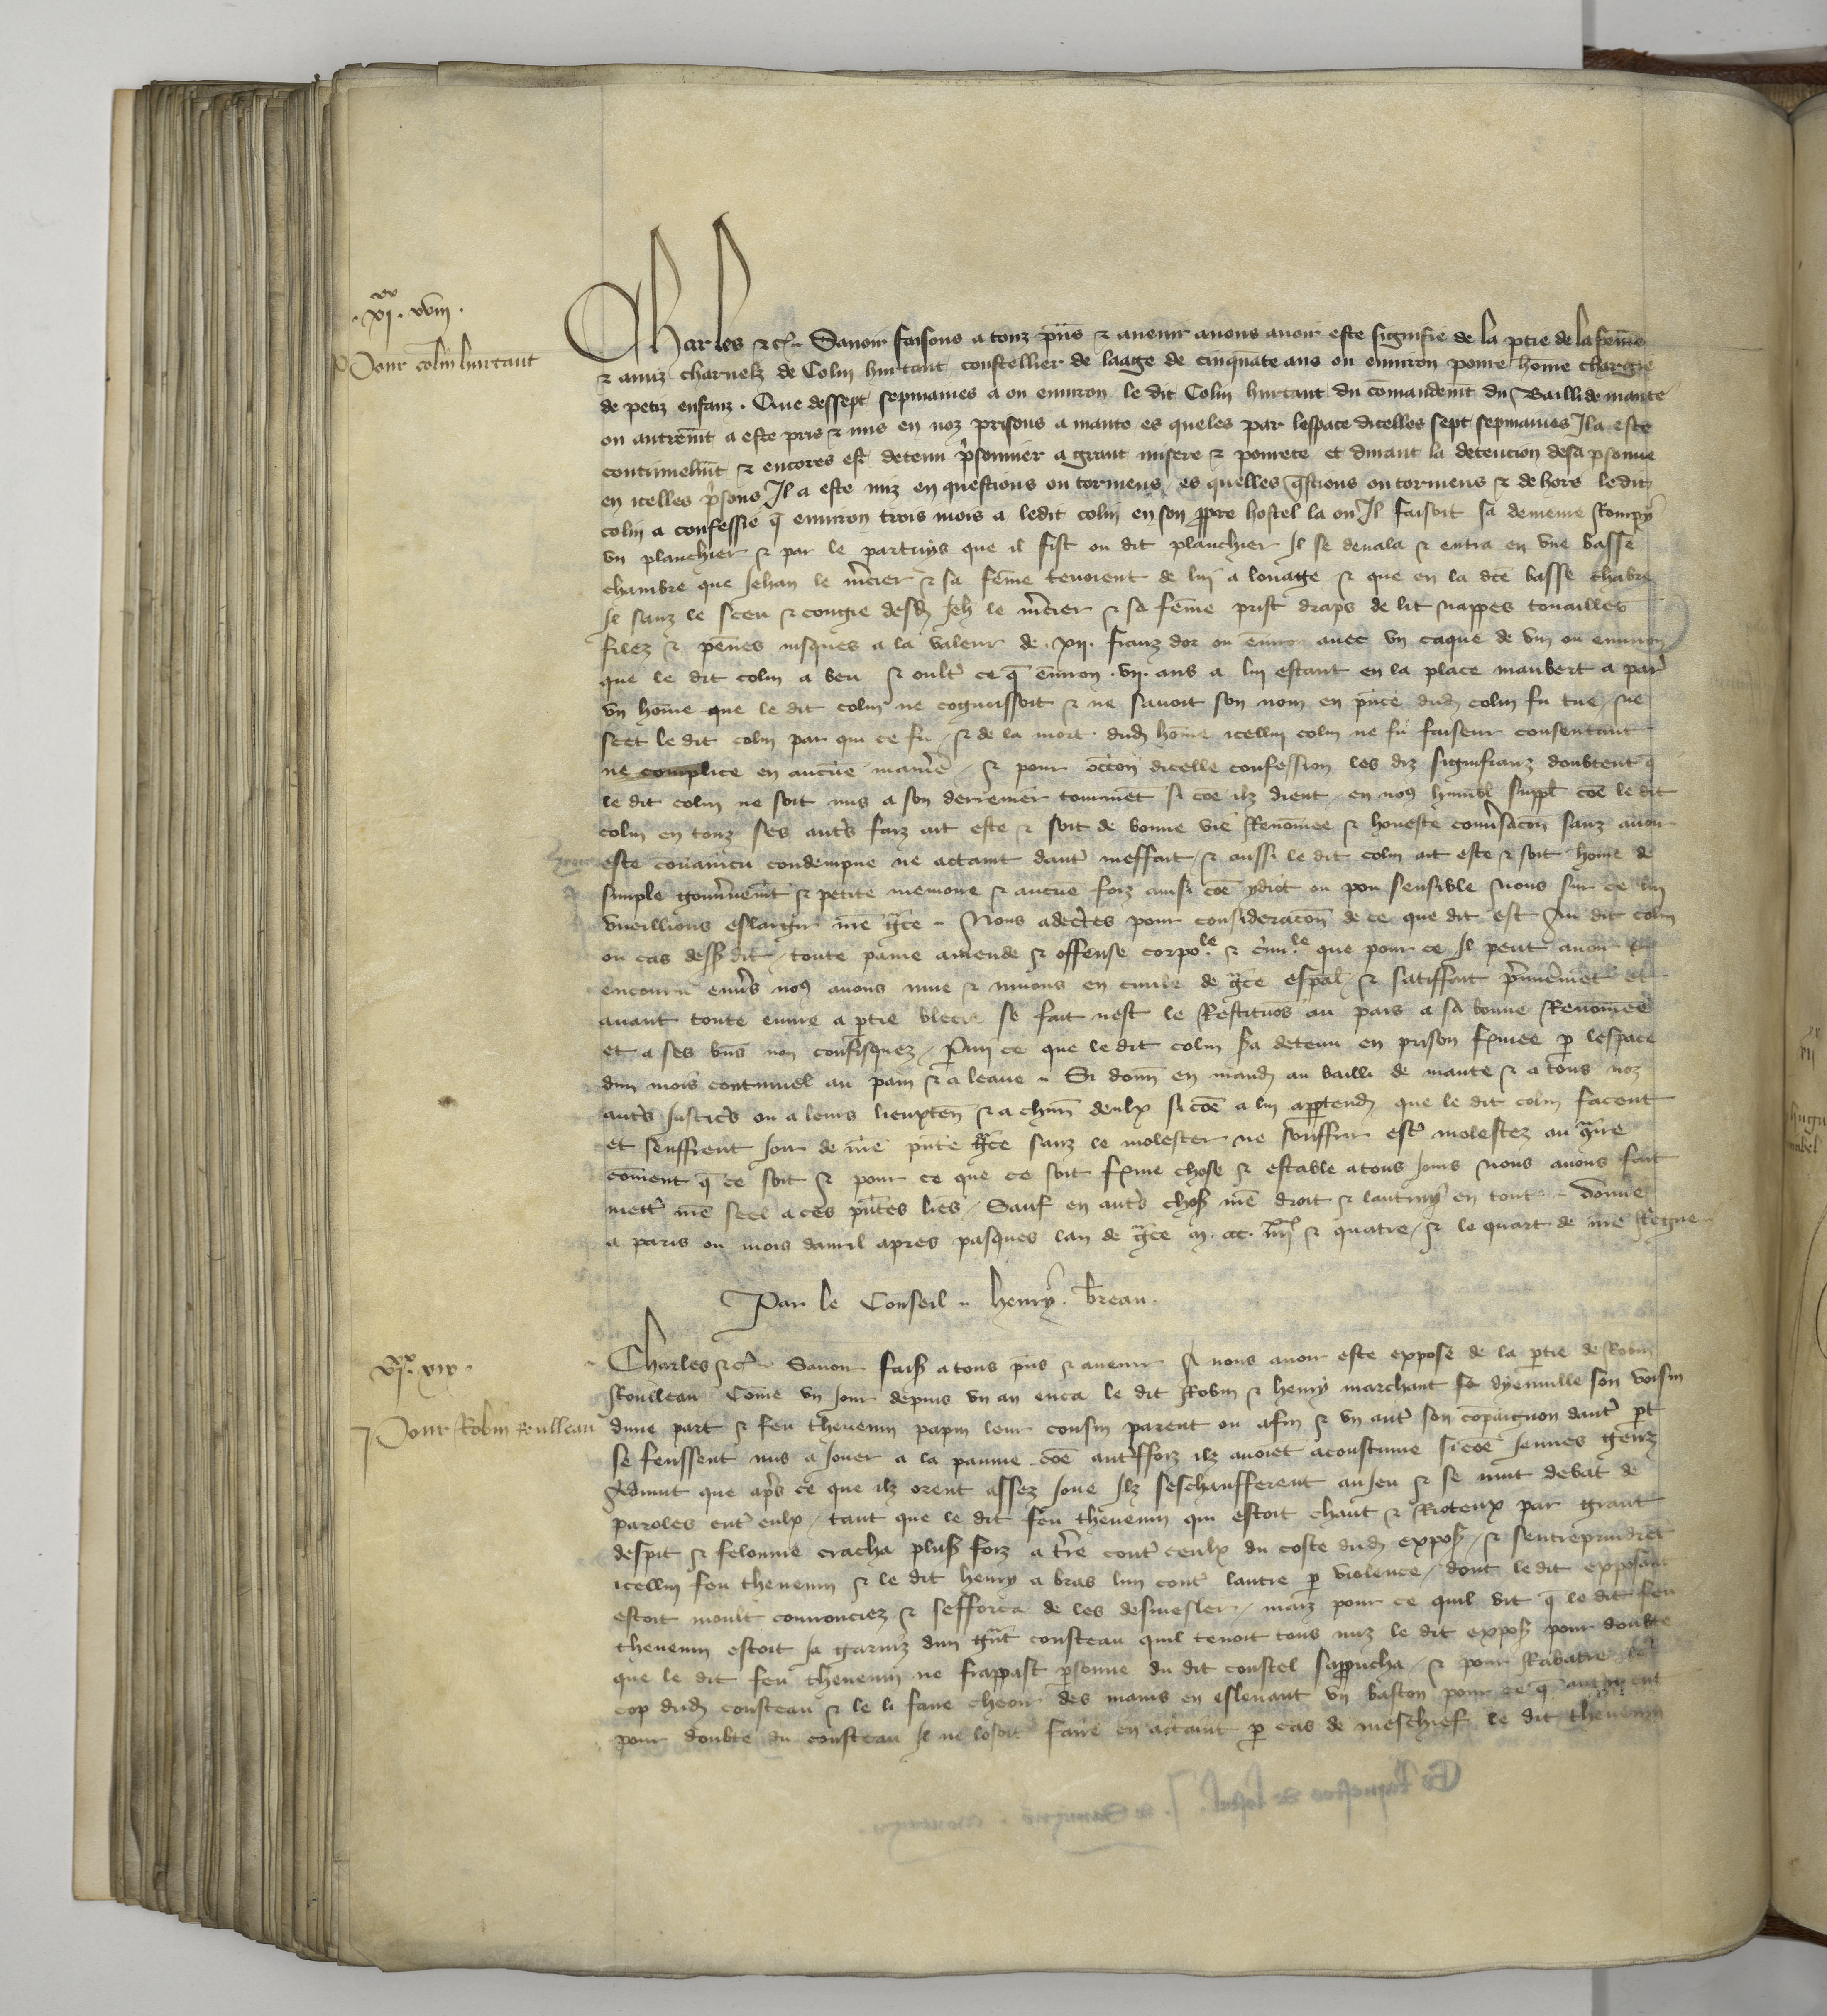 .xi. xviii.
Pour colin hurtaut
Charles etc. Savoir faisons a touz pñs et avenir a nous avoir este signifie de la ptie de la feme
et amiz charnelz de Colin hurtaut coustellier de laage de cinquate ans ou environ povre home chargie
de petiz enfanz. Que dessept sepmaines a ou environ le dit Colin hurtaut du comandemt du Bailli de mante
ou autremt a este pris et mis en noz prisons a mante es queles par lespace dicelles sept sepmaines Il a este
continuelmt et encores est detenu psonnier a grant misere et povrete et durant la detencion de sa psonne
en icelles psons Il a este miz en questions ou tormens es quelles qstions ou tormens et dehors ledit
colin a confessie q environ trois mois a ledit colin en son ppre hostel la ou Il faisoit sa demeure Rompy
un planchier et par le partuys que il fist ou dit planchier Il se devala et entra en une basse
chambre que Jehan le mcier et sa feme tenoient de lui a louage et que en la dce basse chabre
Il sanz le sceu et congie desd Jeh le mcier et sa feme prist draps de lit nappes touailles
filez et pennes jusques a la valeur de .xii. franz dor ou environ avec un caque de vin ou environ
que le dit colin a beu et oult ce q environ .vii. ans a lui estant en la place maubert a par
un home que le dit colin ne cognoissoit et ne savoit son nom en pnce dud colin fu tue ne
scet le dit colin par qui ce fu et de la mort dud home icellui colin ne fu faiseur consentant
ne complice en aucune maniere et pour occon dicelle confession les diz signifianz doubtent q
le dit colin ne soit mis a son derrenier tourmet si coe ilz dient en nos humbl suppl coe le dit
colin en touz ses auts faiz ait este et soit de bonne vie Renomee et honeste convsacon sanz avoir
este convaincu condempne ne actaint daut meffait et aussi le dit colin ait este et soit home de
simple gouvnemt et petite memoire et aucune foiz ainsi coe ydiot ou pou sensible Nous sur ce lui
vueillions eslargir nre gce Nous adectes pour consideracon de ce que dit est Au dit colin
ou cas dessdit toute paine amende et offense corpo.le et cim.le que pour ce Il peut avoir
encouru envs nos avons mue et muons en civile de gce espal et satiffait pmieremet et
avant toute euvre a ptie blecie se fait nest le Restituos au pais a sa bonne Renomee
et a ses bns non confisquez Pmi ce que le dit colin sa detenu en prison fmee p lespace
dun mois continuel au pain et a leaue Si donn en mand au bailli de mante et a tous noz
auts Justics ou a leurs lieuxten et a chun deulx si coe a lui apptend que le dit colin facent
et seuffrent Joir de nre pnte gce sanz le molester ne souffrir est molestez au gtre
coment q ce soit et pour ce que ce soit fme chose et estable a tous Jours Nous avons fait
mett nre seel a ces pntes lres Sauf en auts chos nre droit et lautruy en tout donne
a paris ou mois davril apres pasques lan de gce m. ccc. iiii et quatre et le quart de nre Regne
Par le Conseil henry. breau.
xix.
Pour Robin Roulleau
Charles etc. Savoir fais a tous pns et avenir A nous avoir este expose de la ptie de Robin
Roulleau Come un Jour depuis un an enca le dit Robin et henry marchant de dyenville son voisin
dune part et feu thevenin papin leur cousin parent ou afin et un aut son copaignon daut pt
se feussent mis a Jouer a la paume coe autreffoiz ilz avoiet acoustume si coe Jeunes genz
Advint que aps ce que ilz orent assez Joue Ilz seschaufferent au Jeu et se mut debat de
paroles ent eulx tant que le dit feu thevenin qui estoit chaut et Rioteux par grant
despit et felonnie cracha plus foiz a tre cont ceulx du coste dud expos et sentreprindret
icellui feu thevenin et le dit henry a bras lun cont lautre p violence dont ledit exposant
estoit moult courrouciez et sefforca de les desmesler maiz pour ce quil vit q le dit feu
thevenin estoit Ja garniz dun gnt cousteau quil tenoit tous nuz le dit expos pour doubte
que le dit feu thevenin ne frappast psonne du dit coustel sapprucha et pour Rabatre le
cop dud cousteau et le li faire cheoir des mains en eslevant un baston pour ce q autremt
pour doubte du cousteau Il ne losoit faire en actaint p cas de meschief le dit thevenin